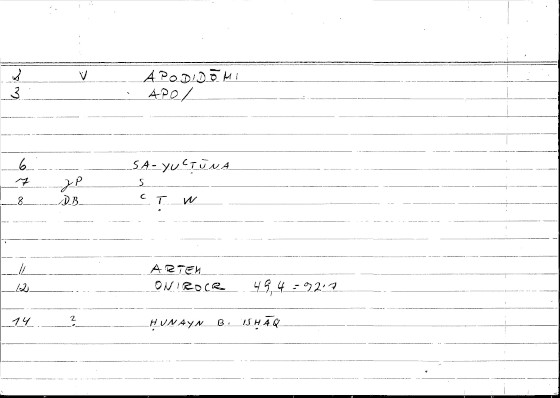 2 V APODIDŌMI
3 APO/
6 SA-YUʿṬŪNA
7 JP S
8 DB ʿ Ṭ W
11 ARTEM
12 ONIROCR 49,4 = 92.1
14 ? ḤUNAYN B. ISḤĀQ